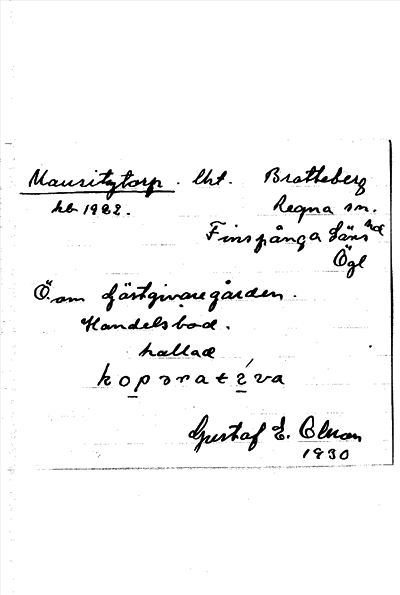 Mauritztorp. lht. Bratteberg
hb 1922. Regna sn.
Finspånga läns hd
Ögl
Ö om Gästgivaregården.
Handelsbod.
kallad
kopərat&íva
Gustaf E. Olson
1930